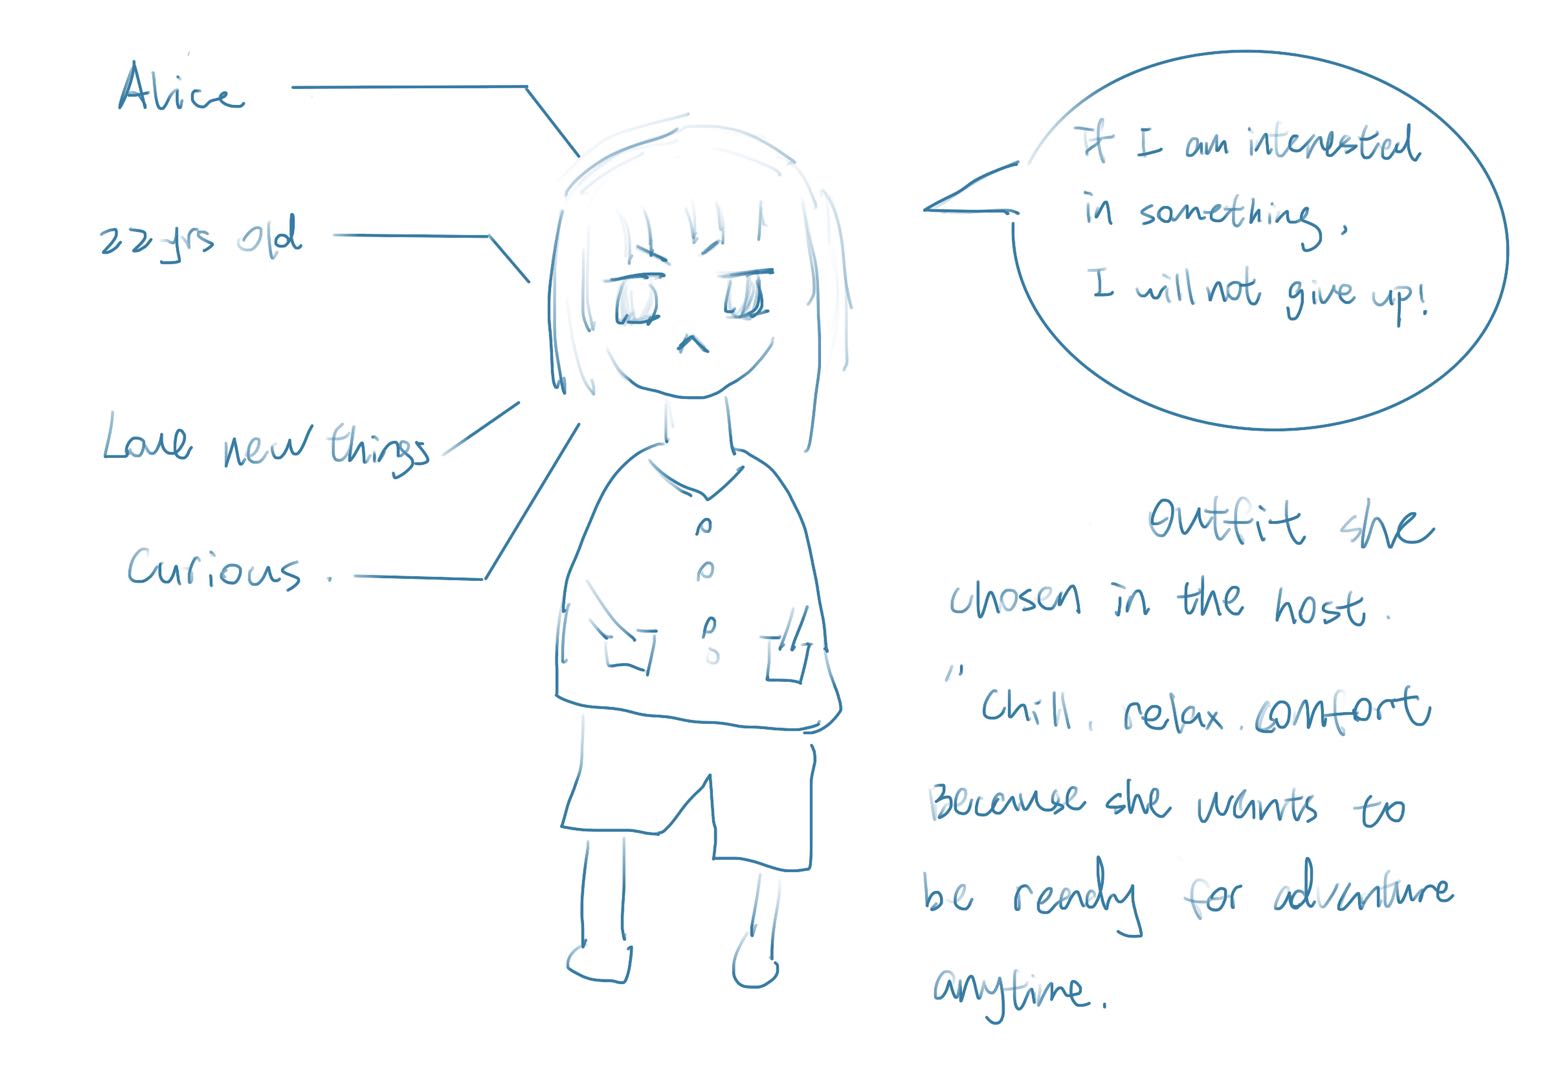 Alice
22 yrs old
Love new things
Curious.
If I am interested
in something,
I will not give up!
Outfit she
chosen in the host.
"Chill. relax. comfort
Because she wants to
be ready for adventure
anytime.